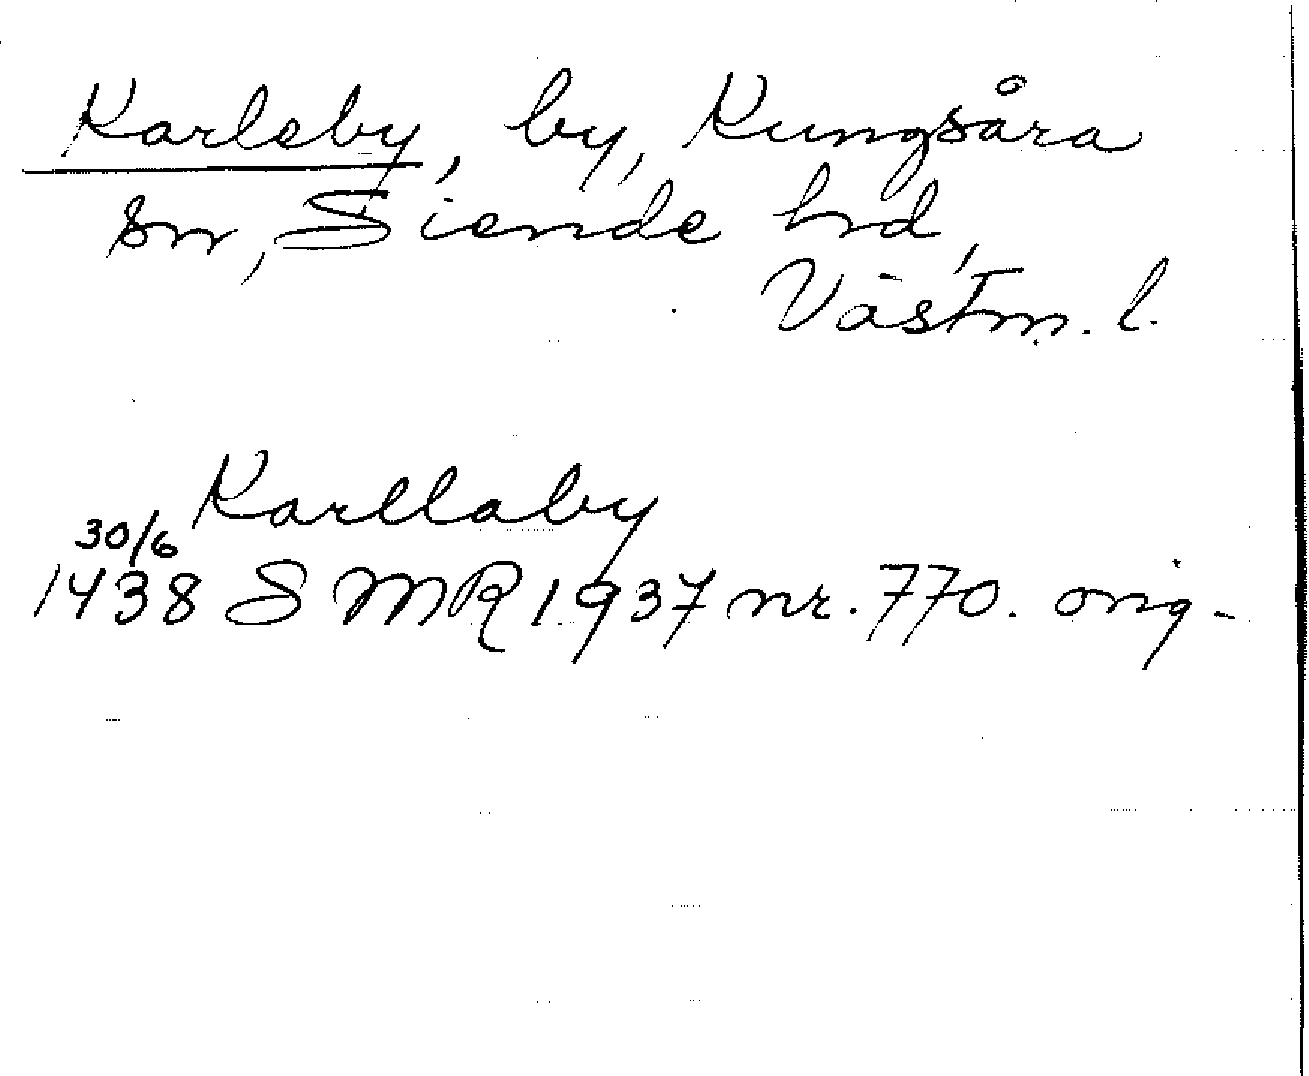 Karleby, by, Kungsåra
sn, Siende hd,
Västm. l.
Karllaby
30/6
1438 SMR 1937 nr. 770. orig.